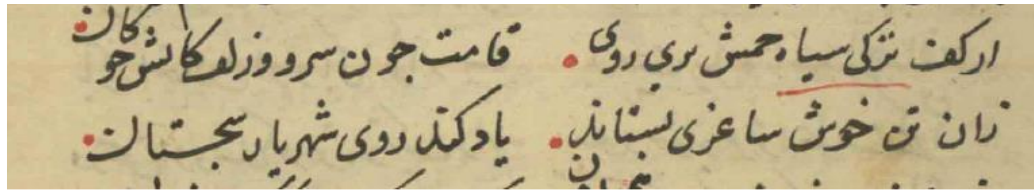 از کف ترکی سیاه جشم بری روی • قامت جون سرو و زلفکانش جوکان •
زان می خوش ساغری بستاند • یاد کند روی شهریار سجستان •